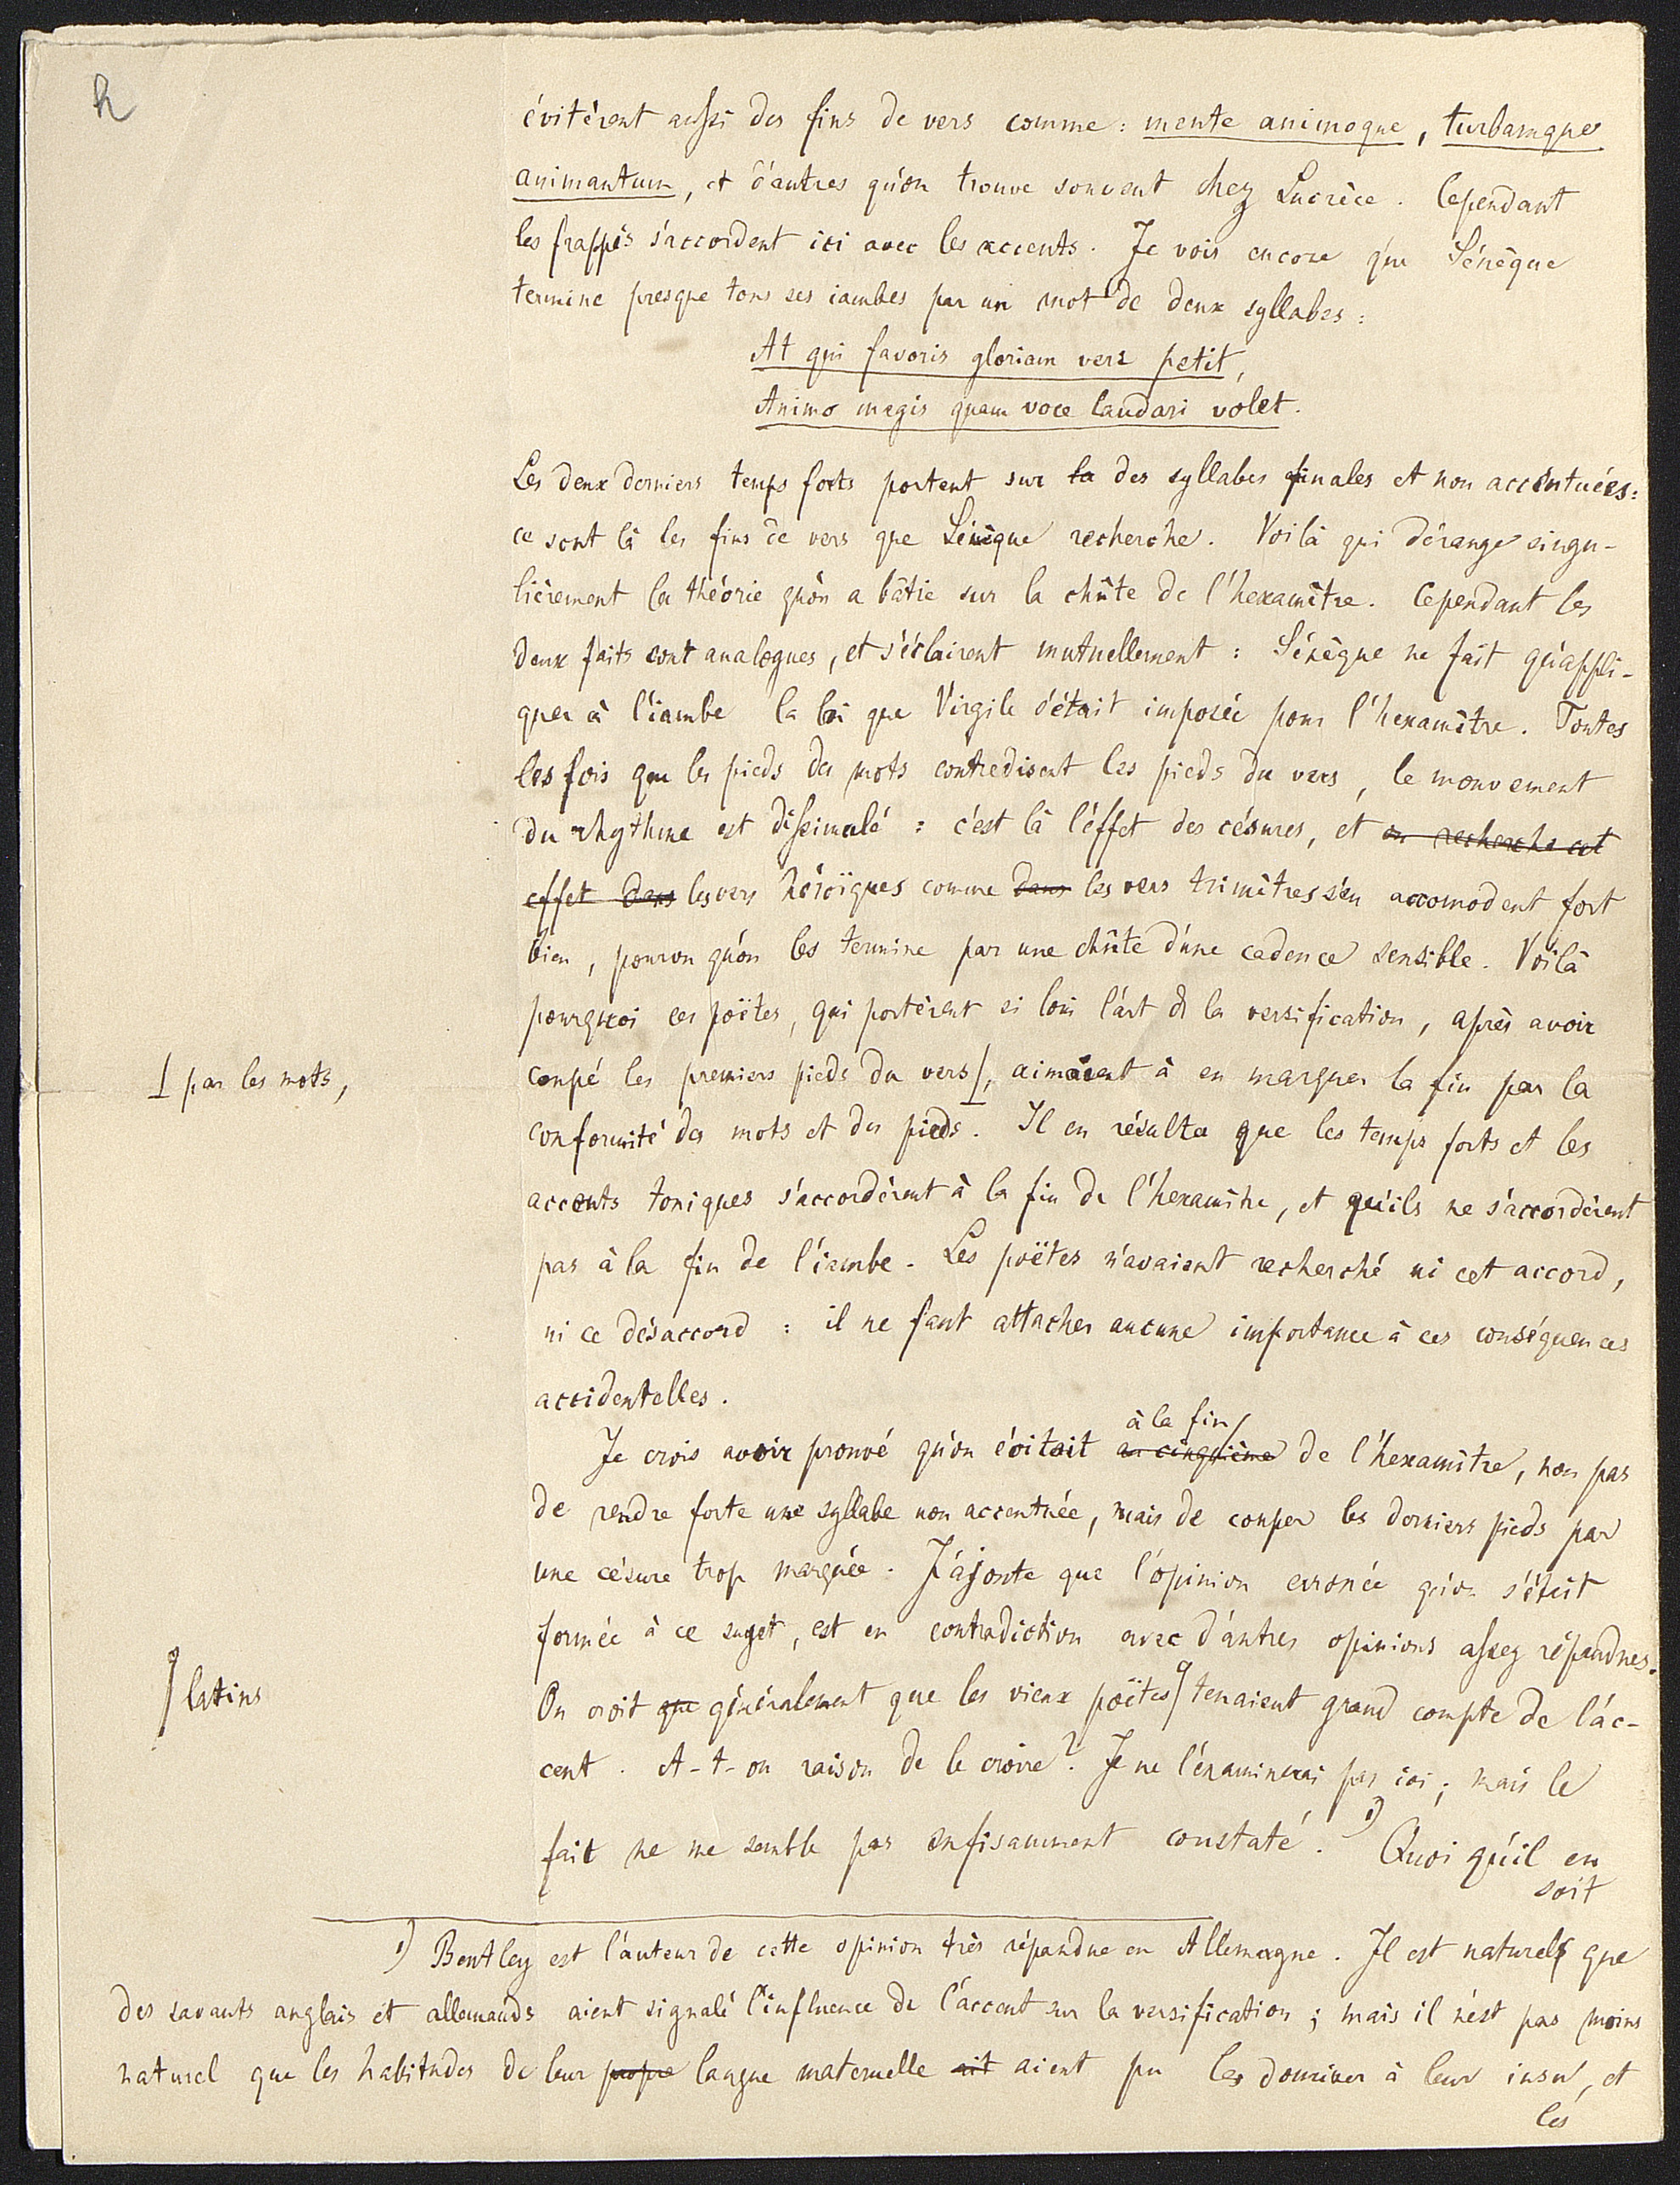 h
évitèrent aussi des fins de vers comme : mente animoque, turbamque
animantum, et d'autres qu'on trouve souvent chez Lucrèce. Cependant
les frappés s'accordent ici avec les accents. Je vois encore que Sénèque
termine presque tous ses iambes par un mot de deux syllabes :
At qui favoris gloriam veri petit,
Animo magis quam voce laudari volet.
Les deux derniers temps forts portent sur la des syllabes finales et non accentuées :
ce sont là les fins de vers que Sénèque recherche. Voilà qui dérange singu-
lièrement la théorie qu'on a bâtie sur la chûte de l'hexamètre. Cependant les
deux faits sont analogues, et s'éclairent mutuellement : Sénèque ne fait qu'appli-
quer à l'iambe la loi que Virgile s'était imposée pour l'hexamètre. Toutes
les fois que les pieds des mots contredisent les pieds du vers, le mouvement
du rhythme est dissimulé : c'est là l'effet des césures, et on recherche cet
effet dans les vers héroïques comme dans les vers trimètres s'en accomodent fort
bien, pourvu qu'on les termine par une chûte d'une cadence sensible. Voilà
pourquoi ces poëtes, qui portèrent si loin l'art de la versification, après avoir
⊥ par les mots,
coupé les premiers pieds du vers ⊥, aimaient à en marquer la fin par la
conformité des mots et des pieds. Il en résulta que les temps forts et les
accents toniques s'accordèrent à la fin de l'hexamètre, et qu'ils ne s'accordèrent
pas à la fin de l'iambe. Les poëtes n'avaient recherché ni cet accord,
ni ce désaccord : il ne faut attacher aucune importance à ces conséquences
accidentelles.
à la fin
Je crois avoir prouvé qu'on évitait au cinquième de l'hexamètre, non pas
de rendre forte une syllabe non accentuée, mais de couper les derniers pieds par
une césure trop marquée. J'ajoute que l'opinion erronée qu'on s'était
formée à ce sujet, est en contradiction avec d'autres opinions assez répandues.
latins
On croit que généralement que les vieux poëtes tenaient grand compte de l'ac-
cent. A-t-on raison de le croire? Je ne l'examinerai pas ici ; mais le
fait ne me semble pas suffisamment constaté. 1) Quoi qu'il en
soit
1) Bentley est l'auteur de cette opinion très répandue en Allemagne. Il est naturel que
des savants anglais et allemands aient signalé l'influence de l'accent sur la versification ; mais il n'est pas moins
naturel que les habitudes de leur propre langue maternelle ait aient pu les dominer à leur insu, et
les